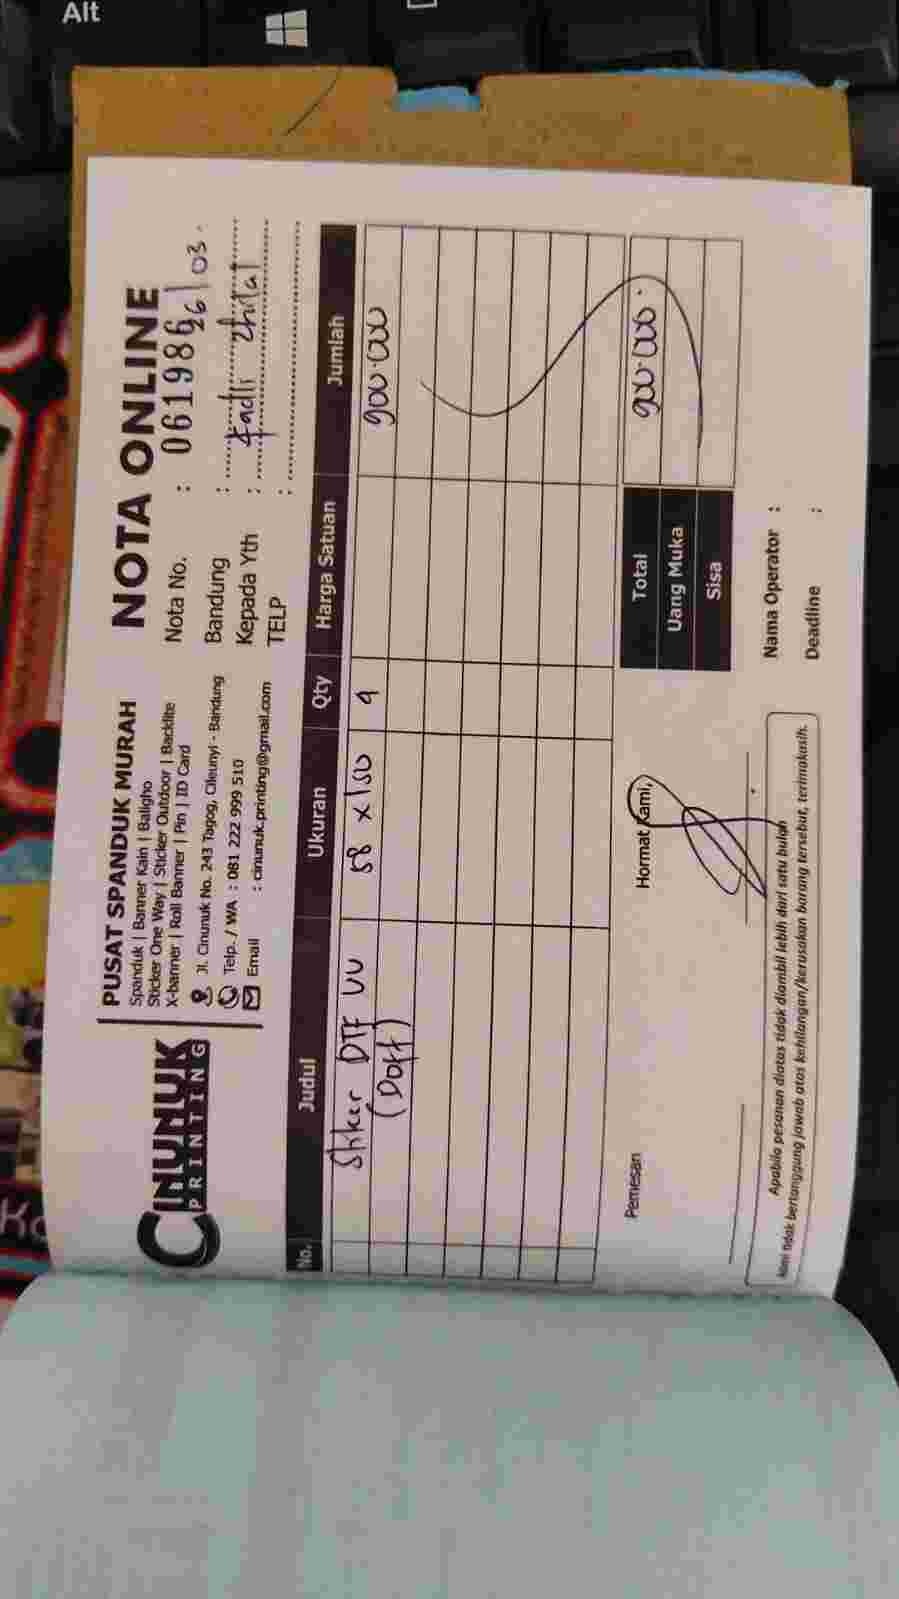 Alt
CINUNUK
PRINTING
PUSAT SPANDUK MURAH
Spanduk | Banner Kain | Baligho
Sticker One Way | Sticker Outdoor | Backlite
X-banner | Roll Banner | Pin | ID Card
Jl. Cinunuk No. 243 Tagog, Cileunyi - Bandung
Telp. / WA : 081 222 999 510
Email : cinunuk.printing@gmail.com
NOTA ONLINE
Nota No. : 061986
Bandung : 26/03.
Kepada Yth : Fadli Zhilal
TELP :
No. Judul Ukuran Qty Harga Satuan Jumlah
Stiker DTF UV 58 x 150 9 900.000
(Doff)
Total 900.000.
Uang Muka
Sisa
Pemesan
Hormat Kami,
Nama Operator :
Deadline :
Apabila pesanan diatas tidak diambil lebih dari satu bulan
kami tidak bertanggung jawab atas kehilangan/kerusakan barang tersebut, terimakasih.